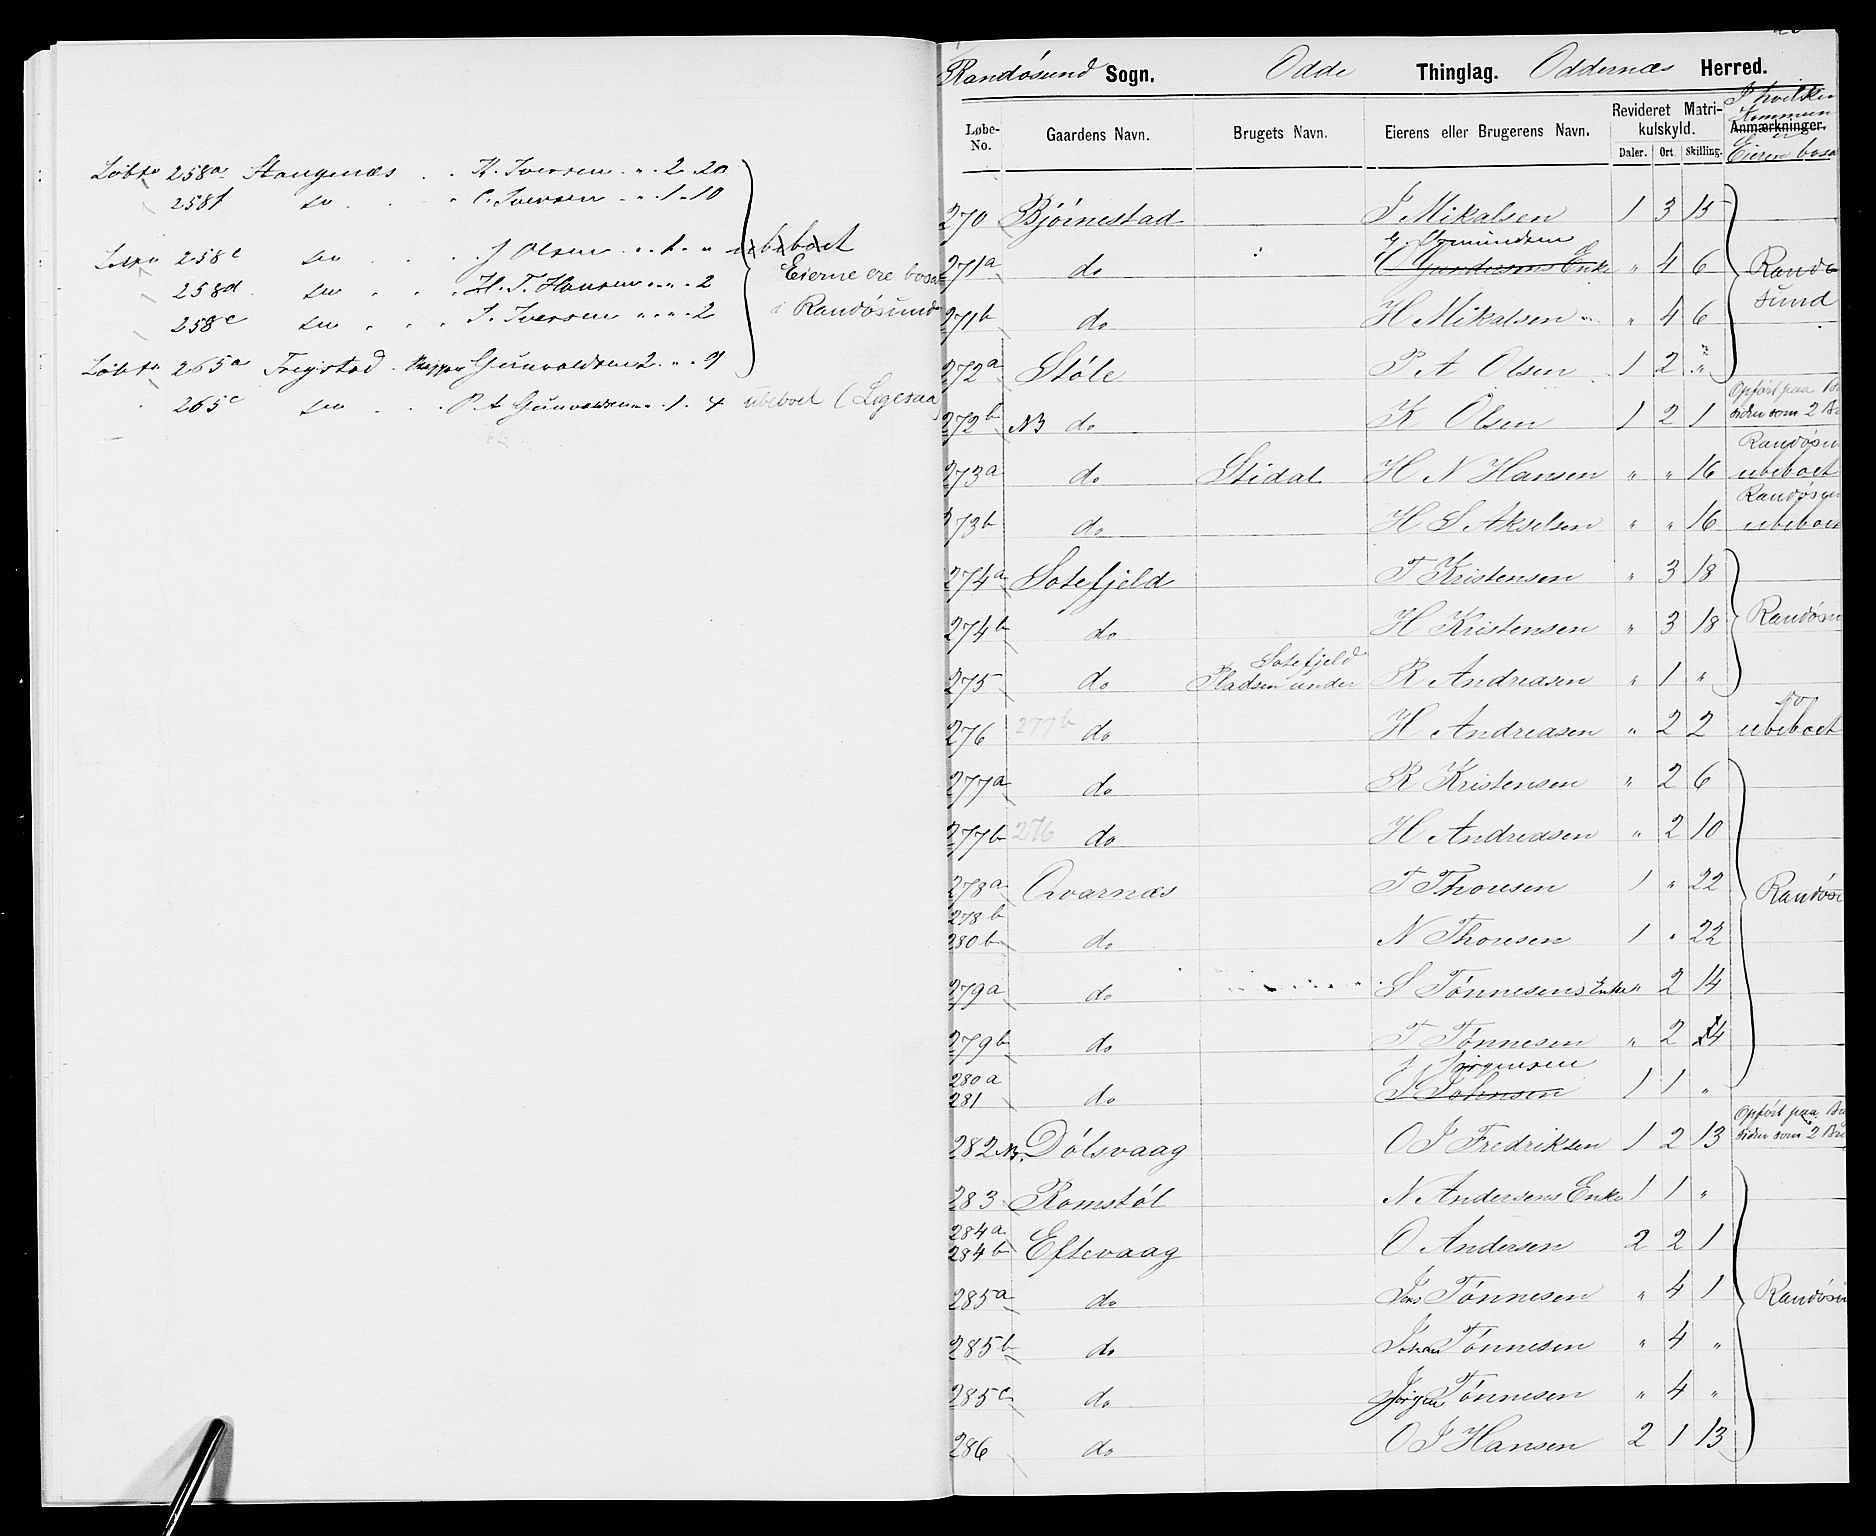 Løbno 258a Stangenæs . . K. Iversen " 2 20
258f do . . " C. Iversen " 1 10
Løbno 258c do . . J Olsen " 1 " ubeboet
258d do " . . H. T. Hansen " " 2 Eierne ere bosat
258e do " . . S. Iversen " " 2 i Randøsund
Løbno 265a Frigstad . Gunvaldsen 2 " 9
265c do . . P. A Gunvaldsen " 1 4 ubeboet (Ligesaa)
Randøsund Sogn. Odde Thinglag. Oddernæs Herred.
Løbe-No. Gaardens Navn. Brugets Navn. Eierens eller Brugerens Navn. Revideret Matrikulskyld. Daler. Ort. Skilling. Anmærkninger.
I hvilken Kommune er Eieren bosa
270 Bjørnestad J Mikalsen 1 3 15
G. Gumundsen
271a do O Gundersens Enke " 4 6 Randø
sund
271b do H Mikalsen " 4 6
272a Støle P A Olsen 1 2 "
272b NB do K Olsen 1 2 1 Opført paa Br
siden som 2 Br
273a do Stidal H N Hansen " " 16 Randøsu
ubeboet
273b do H S Akselsen " " 16 Randøsun
ubeboet
274a Sotefjeld T Kristensen " 3 18
274b do H Kristensen " 3 18 Randøsu
275 do Pladsen under Sotefjeld R Andreasen " 1 "
276 277b do H Andreasen " 2 2 do
ubeboet
277a do R Kristensen " 2 6
277b 276 do H Andreasen " 2 10
278a Qvarnæs T Thorsen 1 " 22 Randøs
278b
280b do N Thorsen 1 " 22
279a do S Tønnesens Enke " 2 14
279b do T Tønnesen " 2 14
J Jørgensen
280a
281 do S Johnsen 1 1 "
282 NB. Dølsvaag O J Fredriksen 1 2 13 Opført paa Br
siden som 2 Br
283 Romstøl N Andersens Enke 1 1 "
284a
284b Eftevaag O Andersen 2 2 1
285a do Jens Tønnesen " 4 1 Randøsu
285b do Johan Tønnesen " 4 "
285c do Jørgen Tønnesen " 4 "
286 do O J Hansen 2 1 13